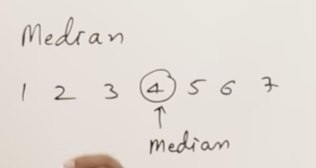 Median
1 2 3 4 5 6 7
↑
median